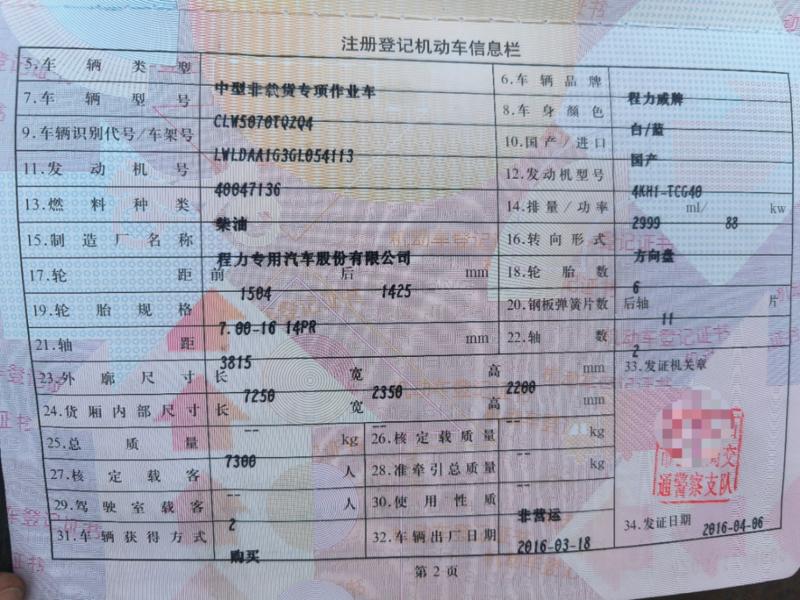 注册登记机动车信息栏
5.车辆类型 中型非载货专项作业车 6.车辆品牌 程力威牌
7.车辆型号 CLW5070TQZQ4 8.车身颜色 白/蓝
9.车辆识别代号/车架号 LWLDAA1G3GL054113 10.国产/进口 国产
11.发动机号 40047136 12.发动机型号 4KH1-TCG40
13.燃料种类 柴油 14.排量/功率 2999 ml/ 88 kw
15.制造厂名称 程力专用汽车股份有限公司 16.转向形式 方向盘
17.轮距 前 1504 后 1425 mm 18.轮胎数 6
19.轮胎规格 7.00-16 14PR 20.钢板弹簧片数 后轴 11 片
21.轴距 3815 mm 22.轴数 2
23.外廓尺寸 长 7250 宽 2350 高 2200 mm 33.发证机关章
24.货厢内部尺寸 长 -- 宽 -- 高 -- mm
25.总质量 7300 kg 26.核定载质量 -- kg
27.核定载客 -- 人 28.准牵引总质量 -- kg
交
通警察支队
29.驾驶室载客 2 人 30.使用性质 非营运
31.车辆获得方式 购买 32.车辆出厂日期 2016-03-18 34.发证日期 2016-04-06
第2页